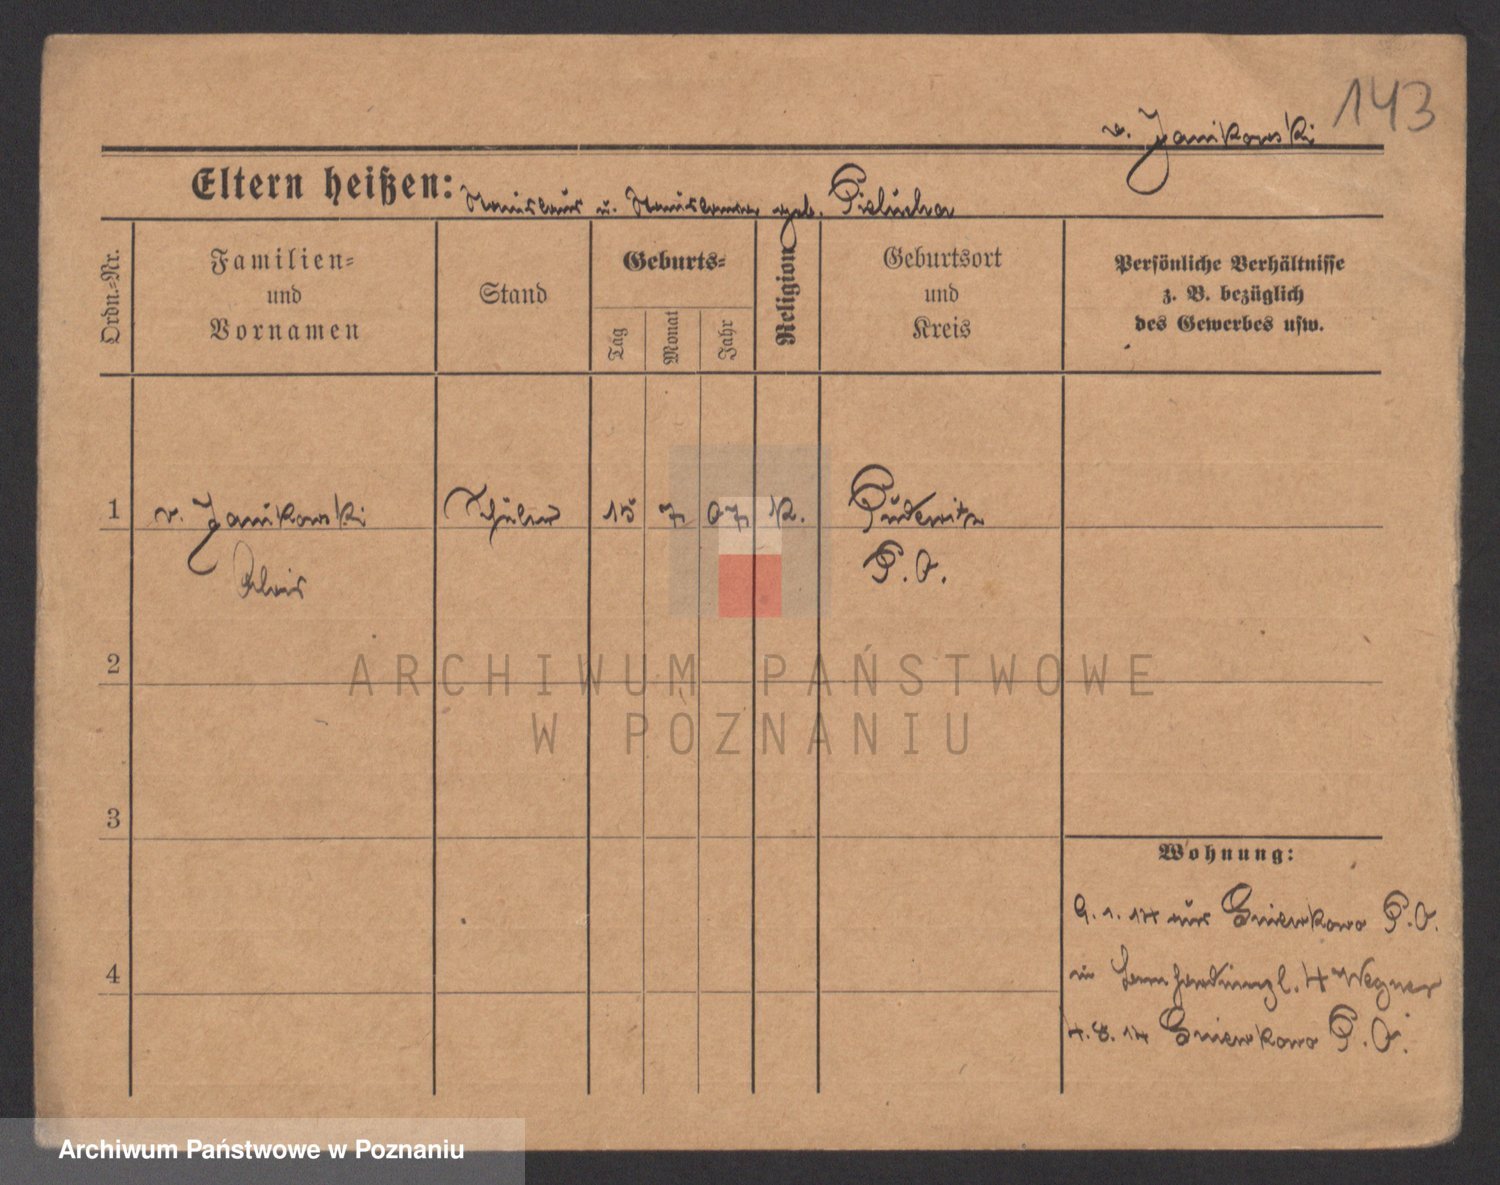 143
v. Janikowski
Eltern heißen: Stanislaus u. Stanislawa geb. Pielucha
Ordn.-Nr.
Familien-
und
Vornamen
Stand
Geburts-
Tag
Monat
Jahr
Religion
Geburtsort
und
Kreis
Persönliche Verhältnisse
z. B. bezüglich
des Gewerbes usw.
1 v. Janikowski Schüler 15 7 07 k. Pudewitz
Alois P. O.
2
ARCHIWUM PAŃSTWOWE
W POZNANIU
3
Wohnung:
9. 1. 14 aus Gniewkowo P. O.
4
in 4 Wegner
4. 8. 14 Gniewkowo P. O.
Archiwum Państwowe w Poznaniu